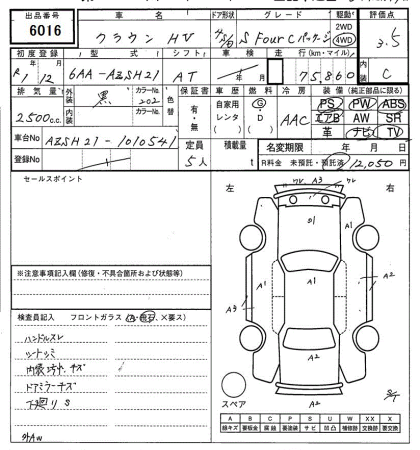 出品番号 車名 ドア形状 グレード 駆動 評価点
6016 クラウン HV 4/5D S Four C パッケージ 2WD 4WD 3.5
初度登録 型式 シフト 車検 走行(km・マイル) 内装
R1年12月 6AA-AZSH21 AT 年 月 75,860 C
排気量 外装 黒 カラーNo. 202 色替 保証書 車歴 燃料 冷房 装備(純正部品に限る)
2500c.c. 内装 カラーNo. 有・無 自家用 レンタ ( ) G・D ( ) AAC PS PW ABS
エアB AW SR
革 ナビ TV
車台No AZSH21-1010541 定員 5人 積載量 t 名変期限 年 月 日
登録No R料金 未預託・預託済 12,050円
セールスポイント
左 右
ワレ A3 ワレ
A1
A1 A1 A1
A2
A3
A2
A2
スペア
S/T
※注意事項記入欄(修復・不具合箇所および状態等)
検査員記入 フロントガラス(A・飛石、×要ス)
ハンドルスレ
シートシミ
内装汚れ、キズ
ドアミラーキズ
下廻りS
外AW
A B C P S U W XX X
線キズ 要板金 腐蝕 要塗装 サビ 凹凸 補修跡 交換 要交換